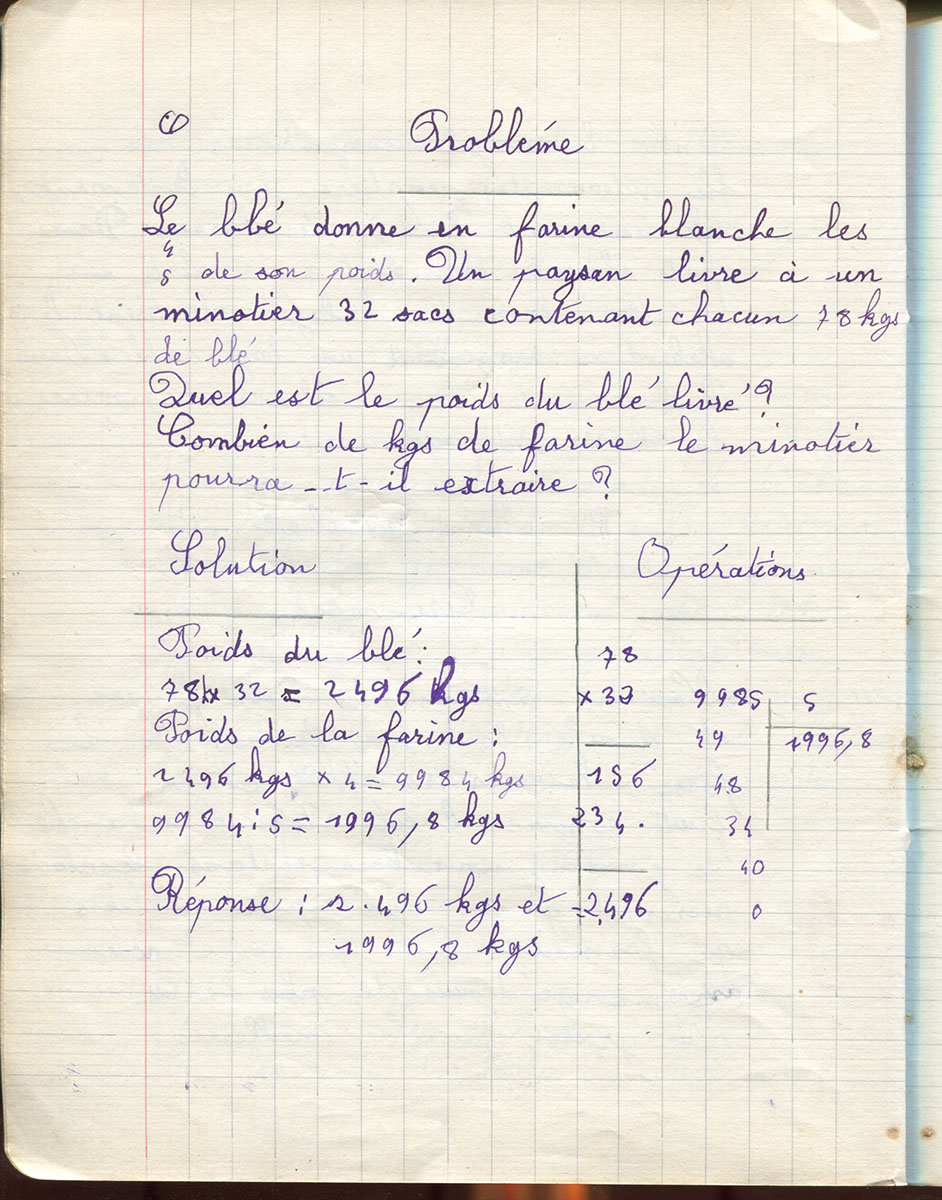 Probléme
Le blé donne en farine blanche les
4
5 de son poids. Un paysan livre à un
minotier 32 sacs contenant chacun 78 kgs
de blé
Quel est le poids du blé livré ?
Combien de kgs de farine le minotier
pourra -t- il extraire ?
Solution
Opérations
Poids du blé :
78 x 32 = 2496 kgs
Poids de la farine :
2496 kgs x 4 = 9984 kgs
9984 : 5 = 1996,8 kgs
Réponse : 2.496 kgs et
1996,8 kgs
78
x 32
156
234.
=2,496
9985 5
49 1996,8
48
34
40
0